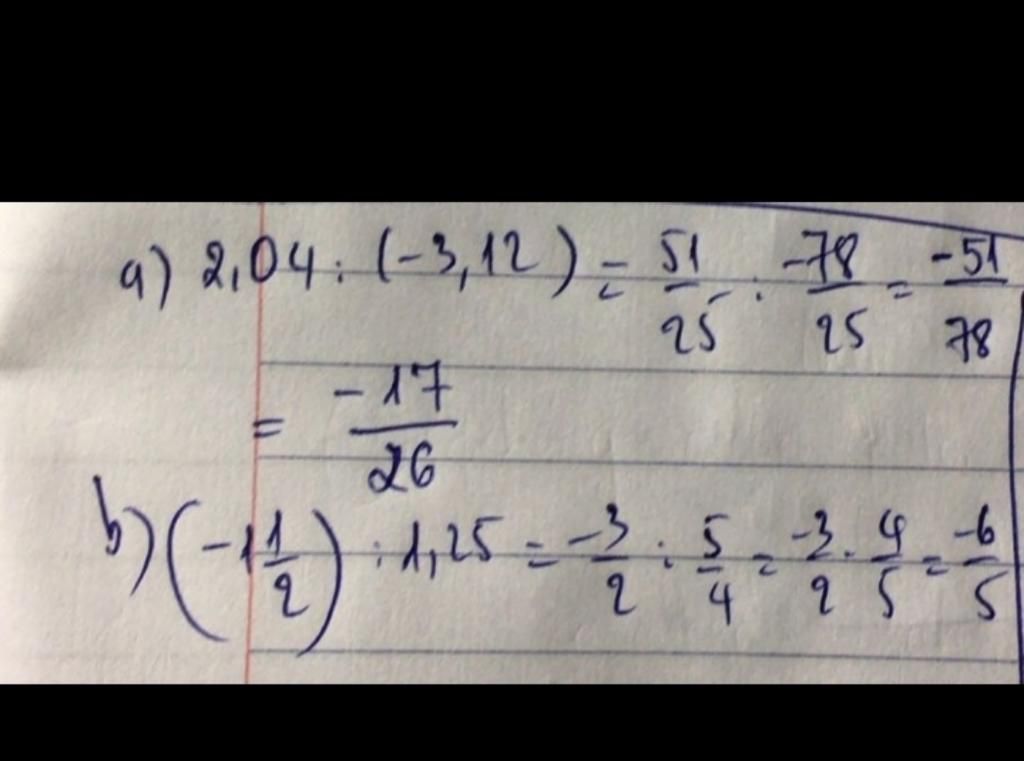 a) 2,04 : (-3,12) = 51/25 : -78/25 = -51/78
= -17/26
b) (-1 1/2) : 1,25 = -3/2 : 5/4 = -3/2 . 4/5 = -6/5